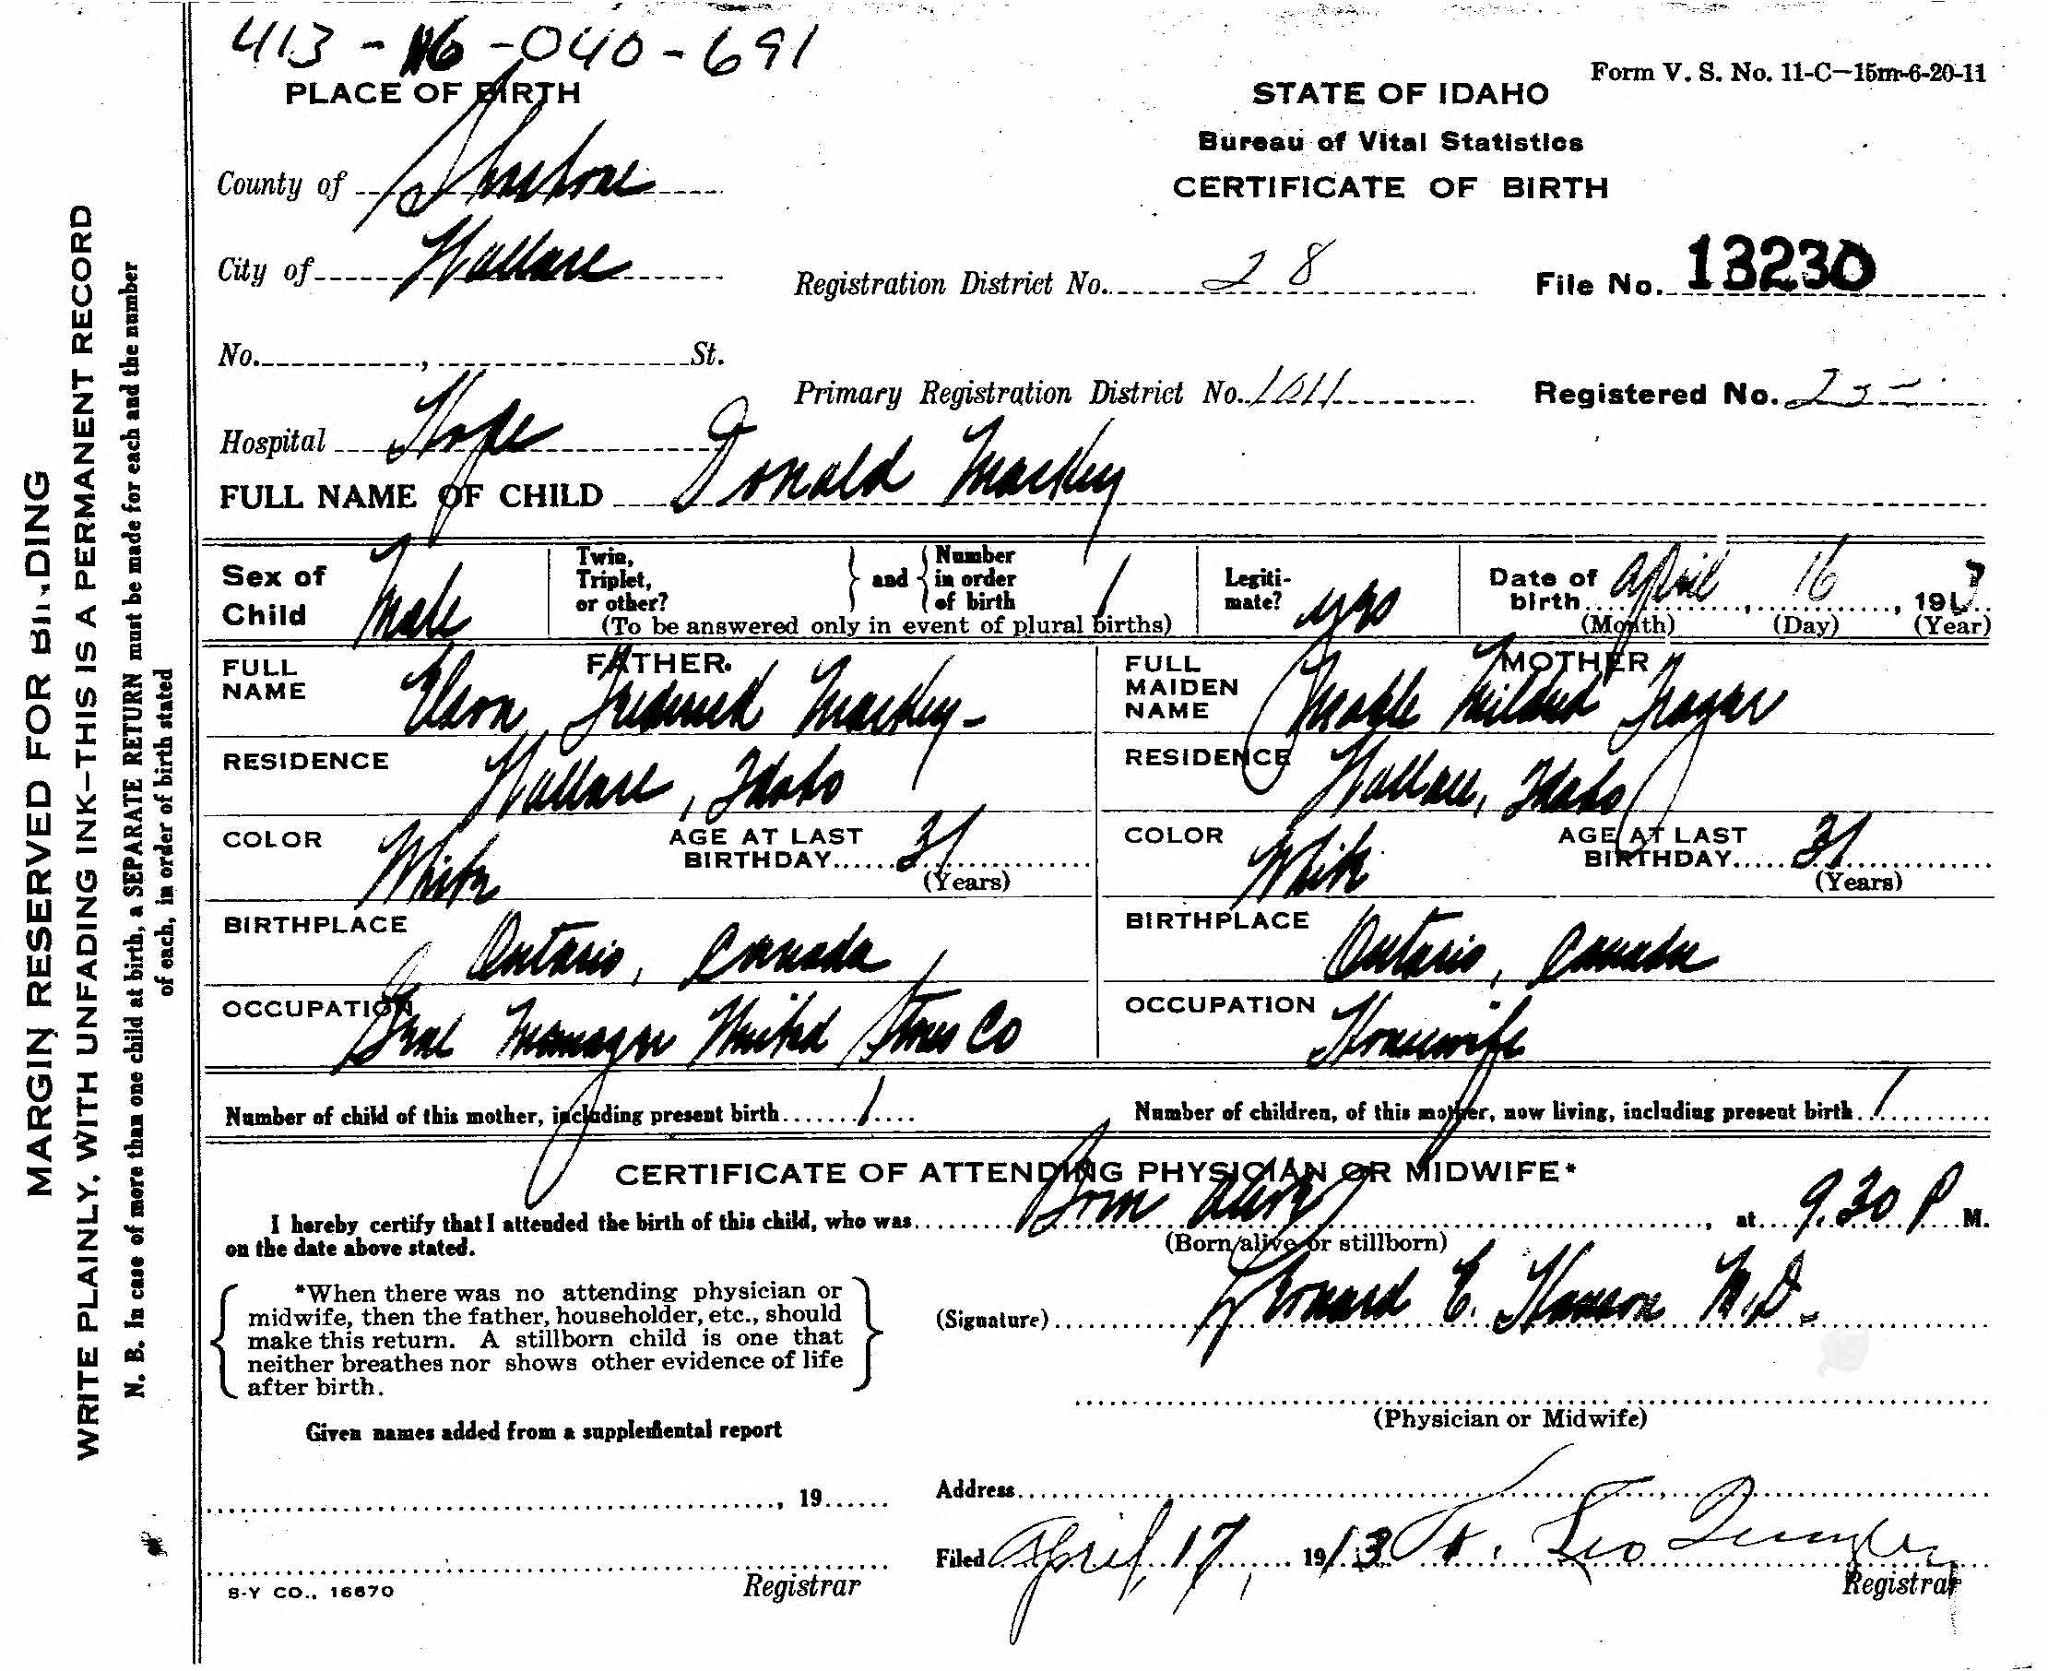 413-16-040-691
Form V. S. No. 11-C-15m-6-20-11
PLACE OF BIRTH
STATE OF IDAHO
Bureau of Vital Statistics
CERTIFICATE OF BIRTH
County of Shoshone
City of Wallace
Registration District No. 28
File No. 13230
No. , St.
Primary Registration District No. 1011
Registered No.
Hospital Hope
FULL NAME OF CHILD Donald Mackey
Sex of Child Male
Twin, Triplet, or other? and Number in order of birth 1
(To be answered only in event of plural births)
Legiti-mate? yes
Date of birth April, 16, 1913
(Month) (Day) (Year)
FATHER.
FULL NAME Elson Frederick Mackey
RESIDENCE Wallace, Idaho
COLOR White
AGE AT LAST BIRTHDAY 31
(Years)
BIRTHPLACE Ontario, Canada
OCCUPATION Genl Manager United Stores Co
MOTHER
FULL MAIDEN NAME Mable Mildred
RESIDENCE Wallace, Idaho
COLOR White
AGE AT LAST BIRTHDAY 31
(Years)
BIRTHPLACE Ontario, Canada
OCCUPATION Housewife
Number of child of this mother, including present birth 1
Number of children, of this mother, now living, including present birth 1
CERTIFICATE OF ATTENDING PHYSICIAN OR MIDWIFE*
I hereby certify that I attended the birth of this child, who was Born alive, at 9.30 P M.
on the date above stated.
(Born alive or stillborn)
*When there was no attending physician or
midwife, then the father, householder, etc., should
make this return. A stillborn child is one that
neither breathes nor shows other evidence of life
after birth.
(Signature) Leonard E. Hanson M.D.
(Physician or Midwife)
Given names added from a supplemental report
, 19
Address
Filed April, 17, 1913 Leo
Registrar
Registrar
S-Y CO., 16670
MARGIN RESERVED FOR BINDING
WRITE PLAINLY, WITH UNFADING INK-THIS IS A PERMANENT RECORD
N. B. In case of more than one child at birth, a SEPARATE RETURN must be made for each and the number
of each, in order of birth stated